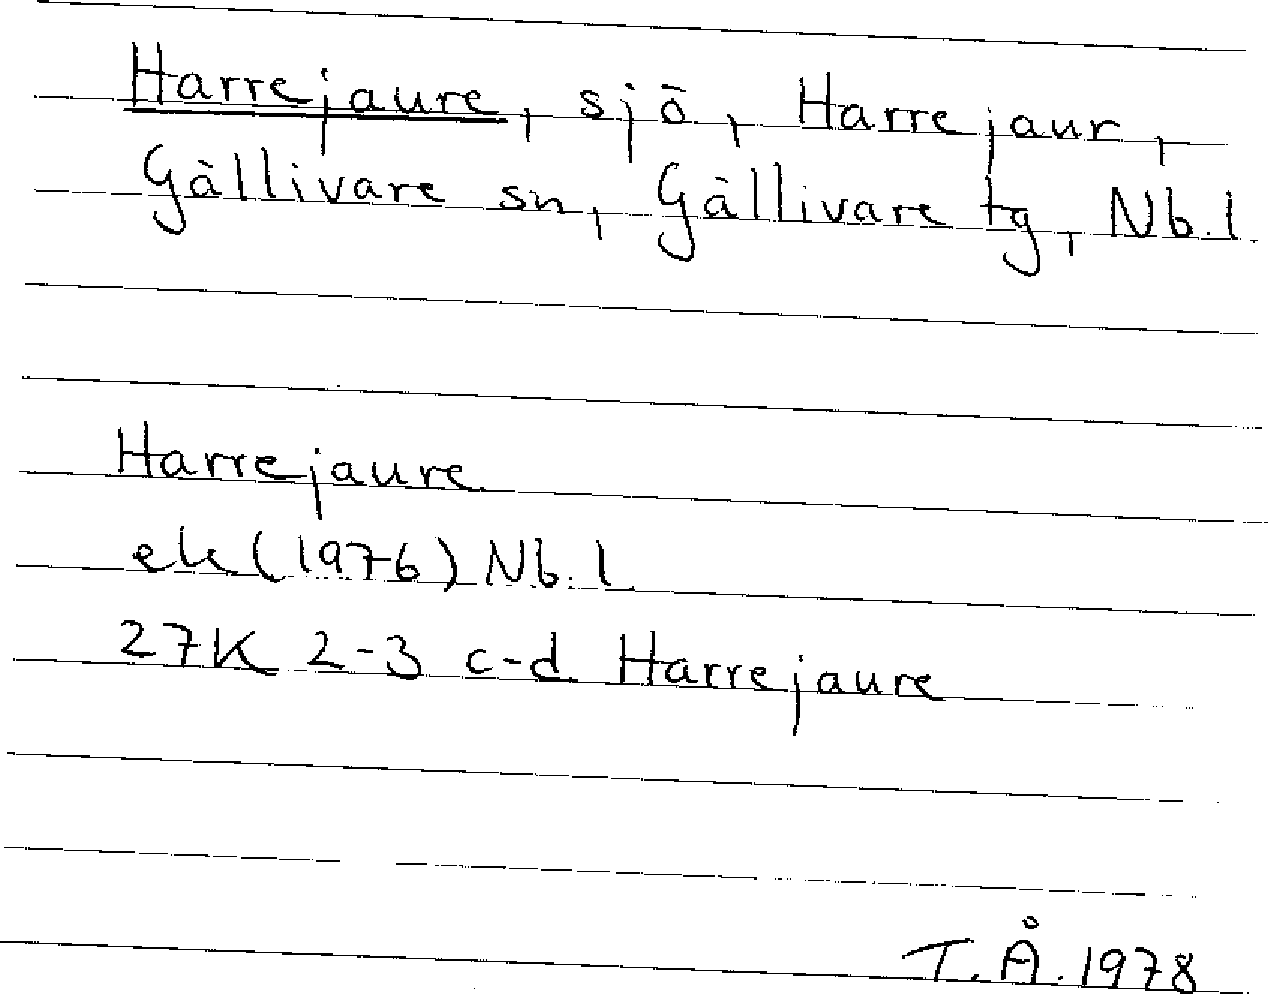 Harrejaure, sjö, Harrejaur,
Gällivare sn, Gällivare tg, Nb.l.
Harrejaure
ek (1976) Nb.l
27K 2-3 c-d Harrejaure
T.Å. 1978